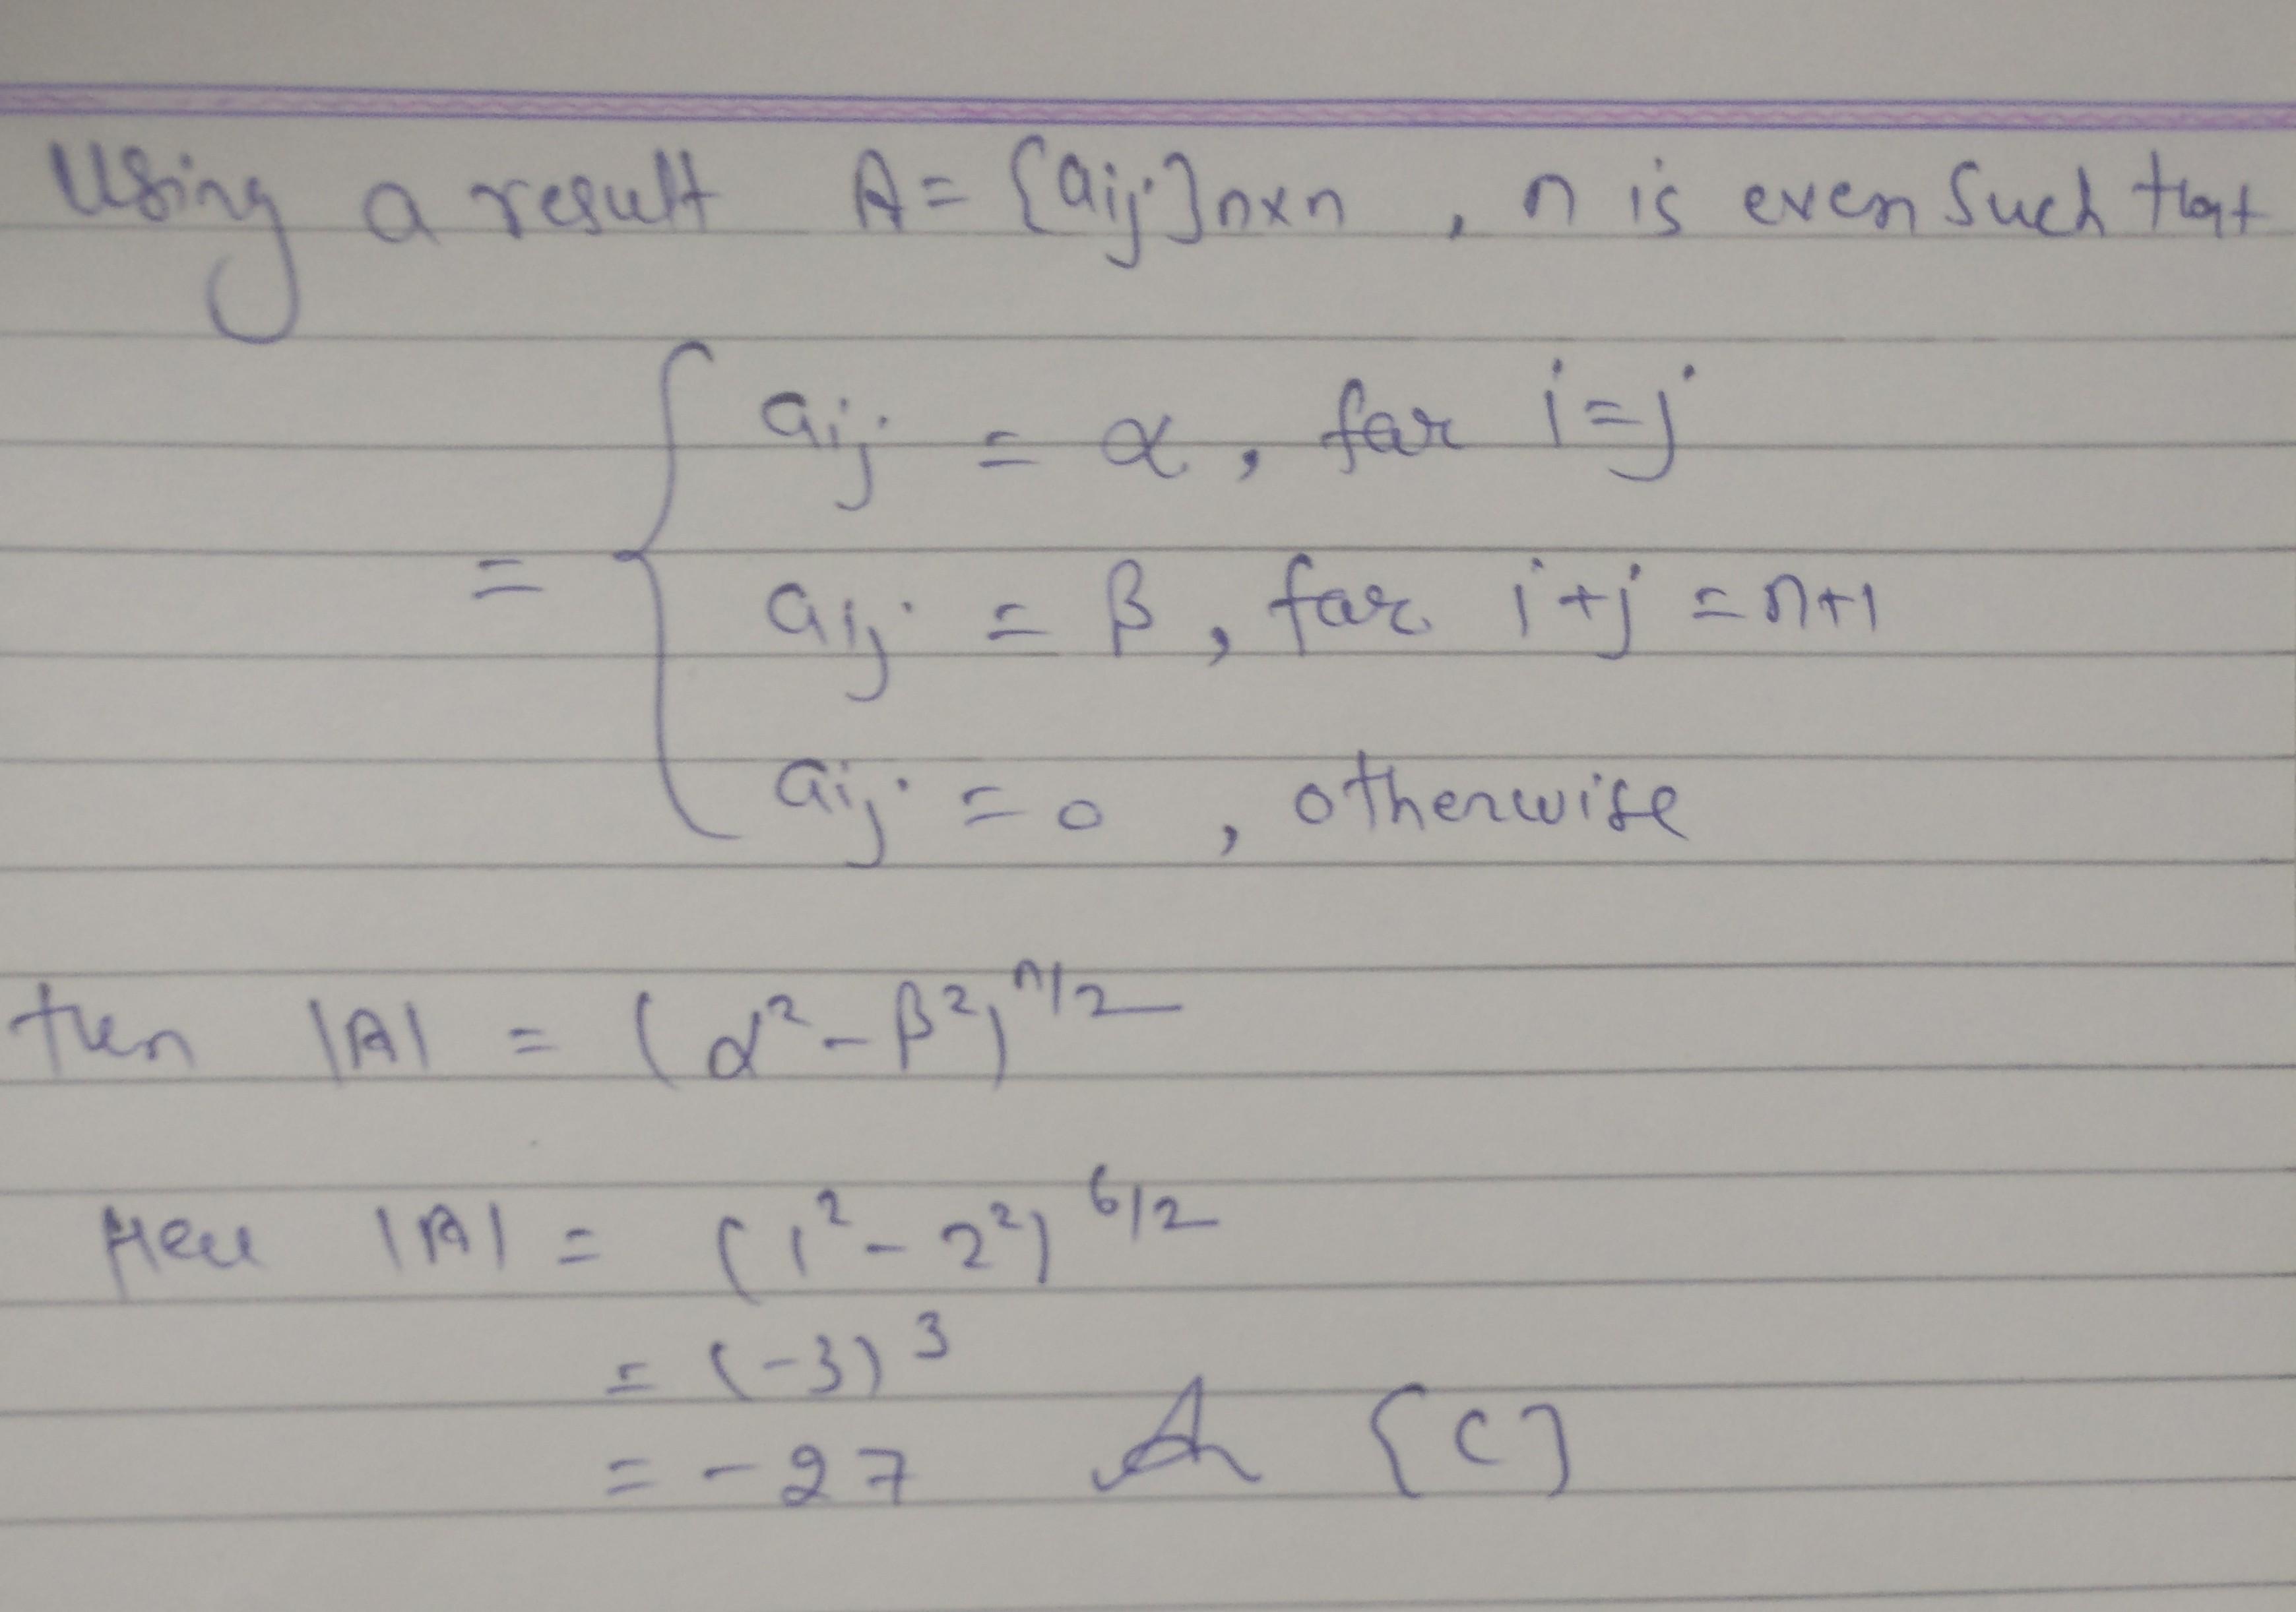 Using a result A = [aij]n×n , n is even such that
aij = α , for i=j
= aij = β , for i+j = n+1
aij = 0 , otherwise
then |A| = (α² - β²)^n/2
Here |A| = (1² - 2²)^6/2
= (-3)³
= -27 A [C]